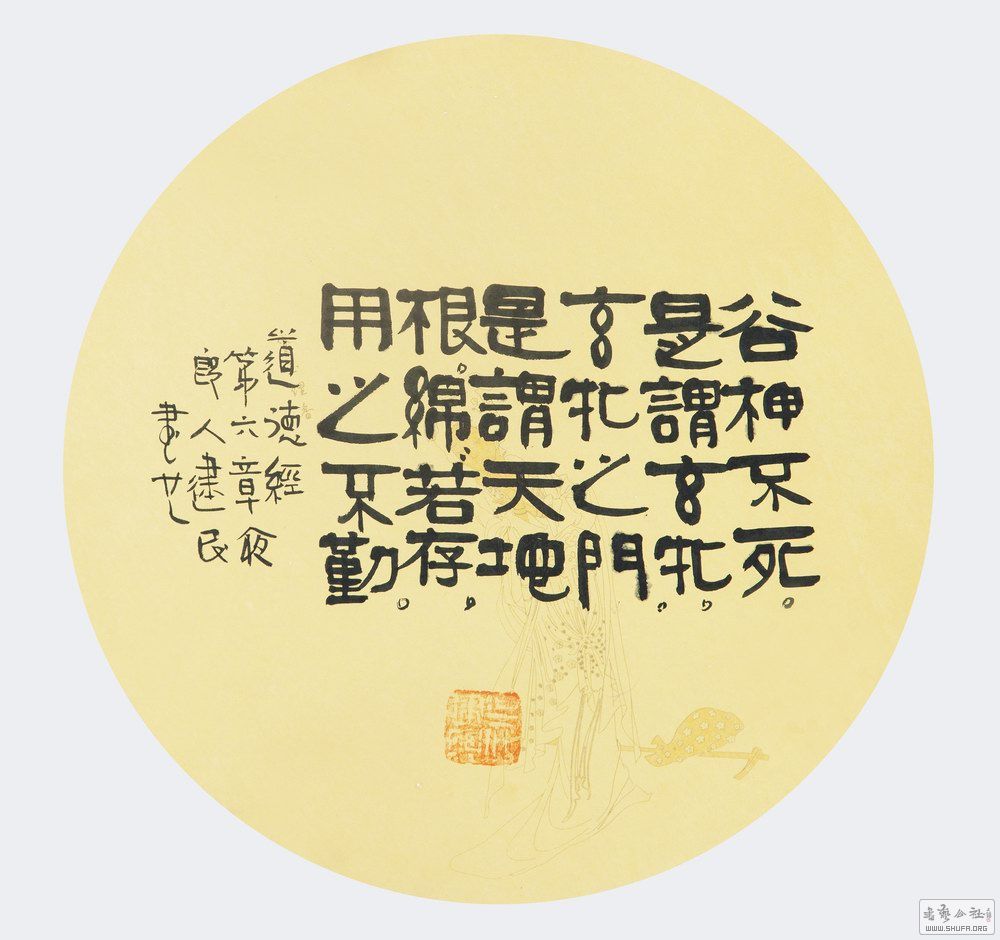 谷神不死。
是謂玄牝。
玄牝之門。
是謂天地
根。綿〻若存。
用之不勤。
道德經
第六章夜
郎人建民
書也
WWW.SHUFA.ORG